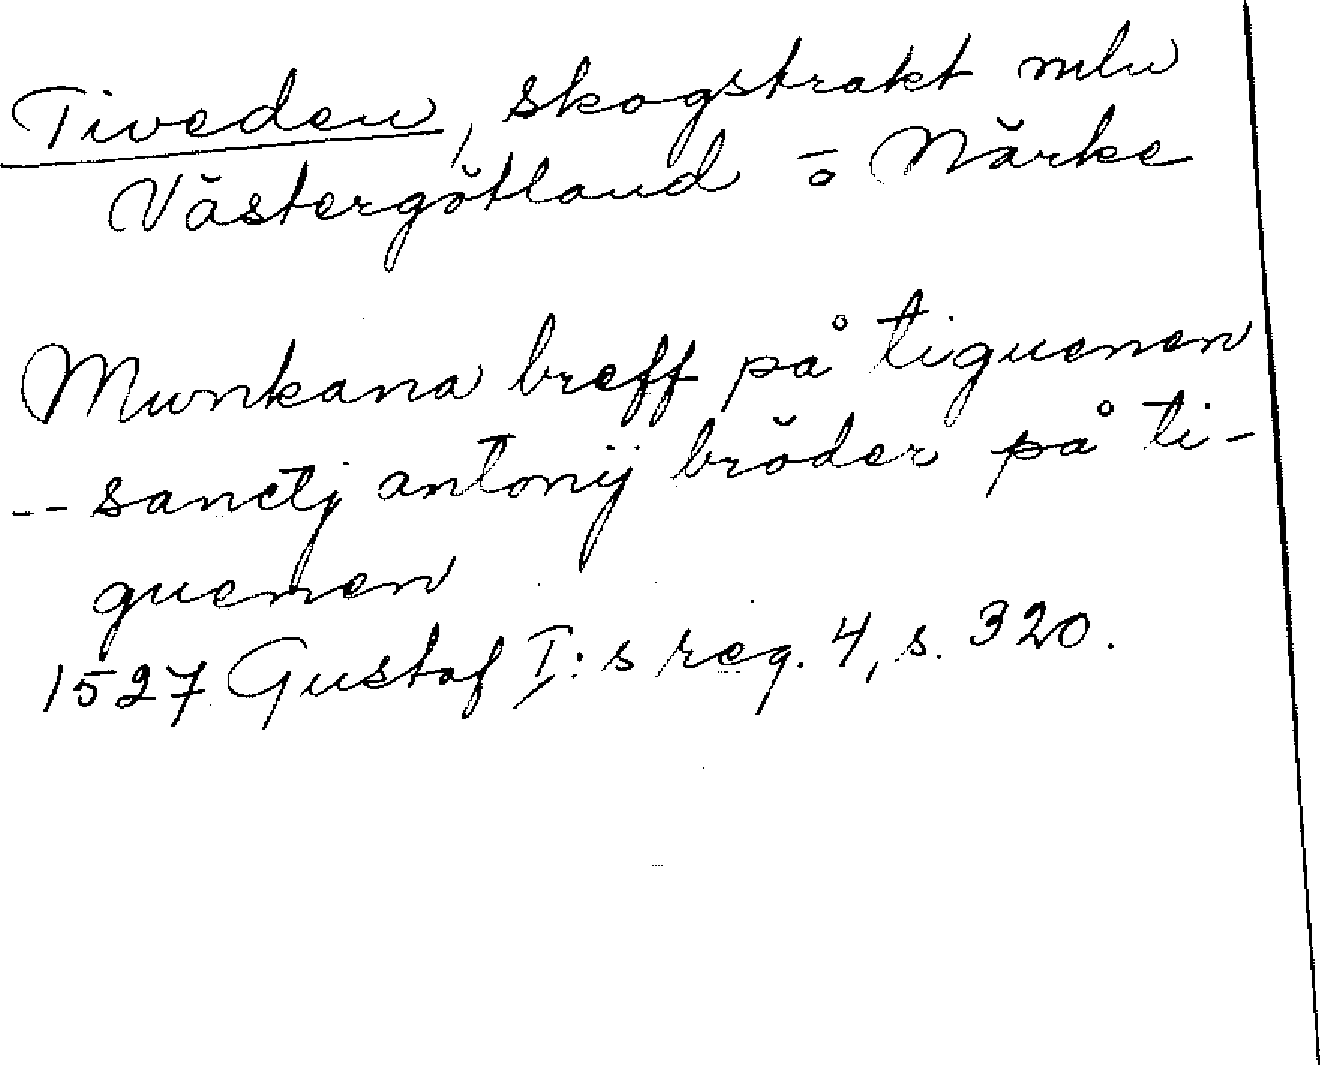 Tiveden, skogstrakt mln
Västergötland o Närke
Munkana breff på tiguenen
-- sanctj antonij bröder på ti-
guenen
1527 Gustaf I:s reg. 4, s. 320.